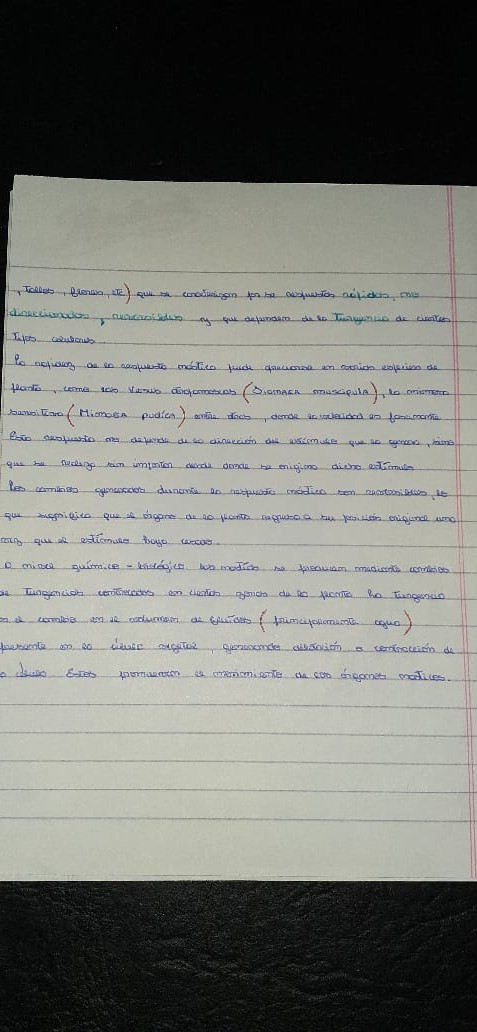 , Tallos, flores, etc) que se caracterizan por ser respuestas rápidas, no
direccionadas, reversibles y que dependen de la Turgencia de ciertos
Tipos celulares.
La rapidez de la respuesta nástica puede apreciarse en varias especies de
planta, como las Venus atrapamoscas (Dionaea muscipula), la mimosa
sensitiva (Mimosa pudica) entre otras, donde la velocidad es fascinante
Esta respuesta no depende de la dirección del estímulo que la genera, sino
que se realiza sin importar desde donde se origina dicho estímulo
Los cambios generados durante la respuesta nástica son reversibles, lo
que significa que el órgano de la planta regresa a su posición original una
vez que el estímulo haya cesado.
A nivel químico - biológico las nastias se producen mediante cambios
de Turgencias controlados en ciertas zonas de la planta. La Turgencia
es el cambio en el volumen de fluidos (principalmente agua)
presente en la célula vegetal, generando dilatación o contracción de
la célula Estos promueven el movimiento de los órganos nasticos.